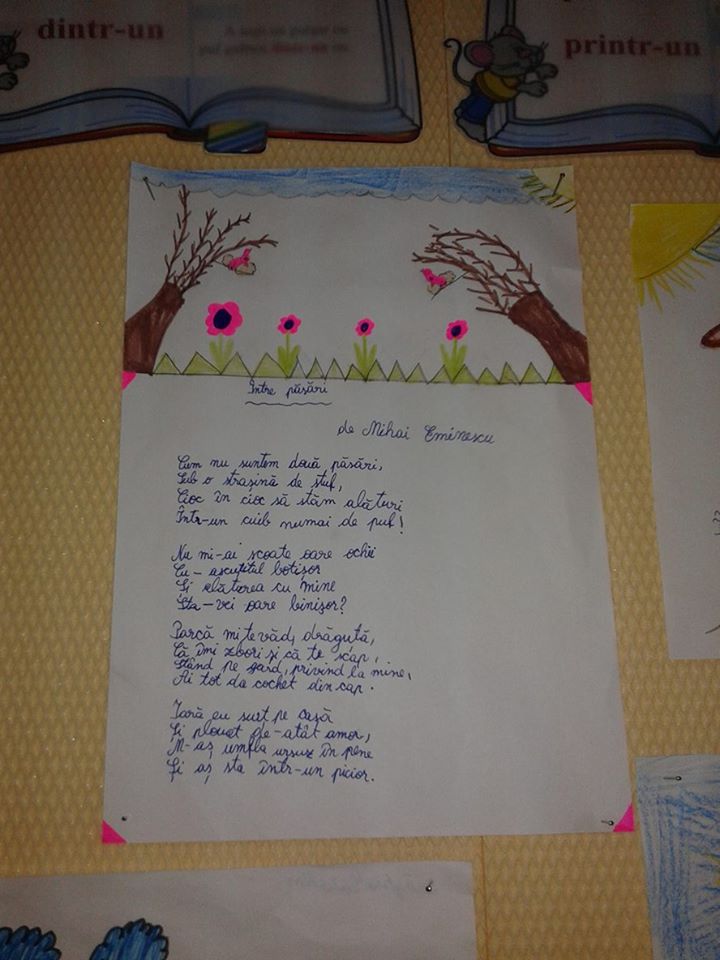 dintr-un
printr-un
Între păsări
de Mihai Eminescu
Cum nu suntem două păsări,
Sub o strașină de stuf,
Cioc în cioc să stăm alături
Într-un cuib numai de puf!
Nu mi-ai scoate oare ochii
Cu-ascuțitul botișor
Și alăturea cu mine
Sta-vei oare binișor?
Parcă mi te văd, drăguță,
Că îmi zbori și că te scap,
Stând pe gard, privind la mine,
Ai tot da cochet din cap.
Iară eu suit pe casă
Și plouat de-atât amor,
M-aș umfla ursuz în pene
Și aș sta într-un picior.